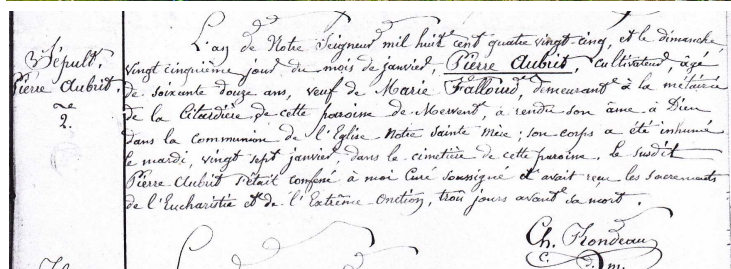 Sépult.
Pierre Aubrit.
2.
L'an de Notre Seigneur mil huit cent quatre vingt-cinq, et le dimanche,
vingt cinquième jour du mois de janvier, Pierre Aubrit, cultivateur, âgé
de soixante douze ans, veuf de Marie Fallourd, demeurant à la métairie
de la Citardière de cette paroisse de Mervent, a rendu son âme à Dieu
dans la communion de l'Eglise Notre Sainte Mère; son corps a été inhumé
le mardi, vingt sept janvier, dans le cimetière de cette paroisse. Le susdit
Pierre Aubrit s'était confessé à moi Curé soussigné et avait reçu les sacrements
de l'Eucharistie et de l'Extrême Onction, trois jours avant sa mort.
Ch. Rondeau